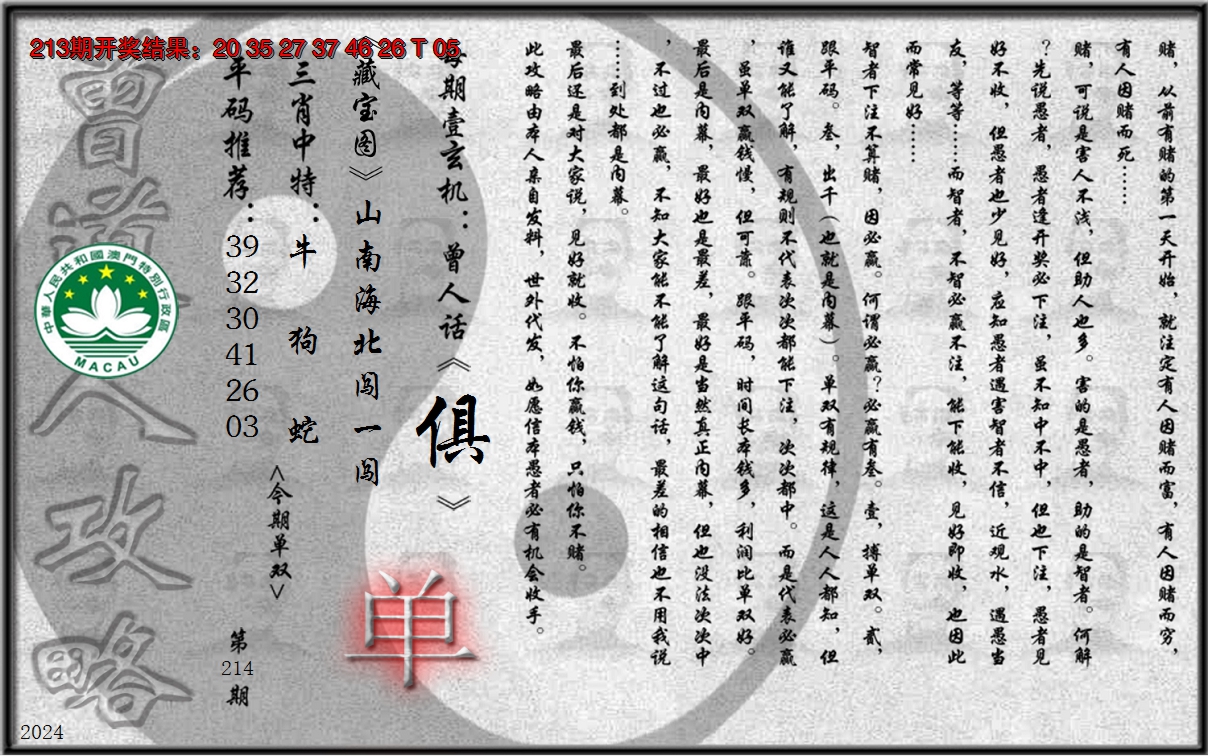 213期开奖结果：20 35 27 37 46 26 T 05
赌，从前有赌的第一天开始，就注定有人因赌而富，有人因赌而穷，
有人因赌而死……
赌，可说是害人不浅，但助人也多。害的是愚者，助的是智者。何解
？先说愚者，愚者逢开奖必下注，虽不知中不中，但也下注，愚者见
好不收，但愚者也少见好，应知愚者遇害智者不信，近观水，遇愚当
友，等等……而智者，不智必赢不注，能下能收，见好即收，也因此
而常见好……
智者下注不算赌，因必赢。何谓必赢？必赢有叁。壹，搏单双。贰，
跟平码。叁，出千（也就是内幕）。单双有规律，这是人人都知，但
谁又能了解，有规则不代表次次都能下注，次次都中。而是代表必赢
，虽单双赢钱慢，但可靠。跟平码，时间长本钱多，利润比单双好。
最后是内幕，最好也是最差，最好是当然真正内幕，但也没法次次中
，不过也必赢，不知大家能不能了解这句话，最差的相信也不用我说
……到处都是内幕。
最后还是对大家说，见好就收。不怕你赢钱，只怕你不赌。
此攻略由本人亲自发料，世外代发，如愿信本愚者必有机会收手。
每期壹玄机：曾人话《俱》
《藏宝图》山南海北闯一闯
三肖中特：牛 狗 蛇
<今期单双>
单
平码推荐：39 32 30 41 26 03
第214期
曾道人攻略
中華人民共和國澳門特別行政區
MACAU
2024